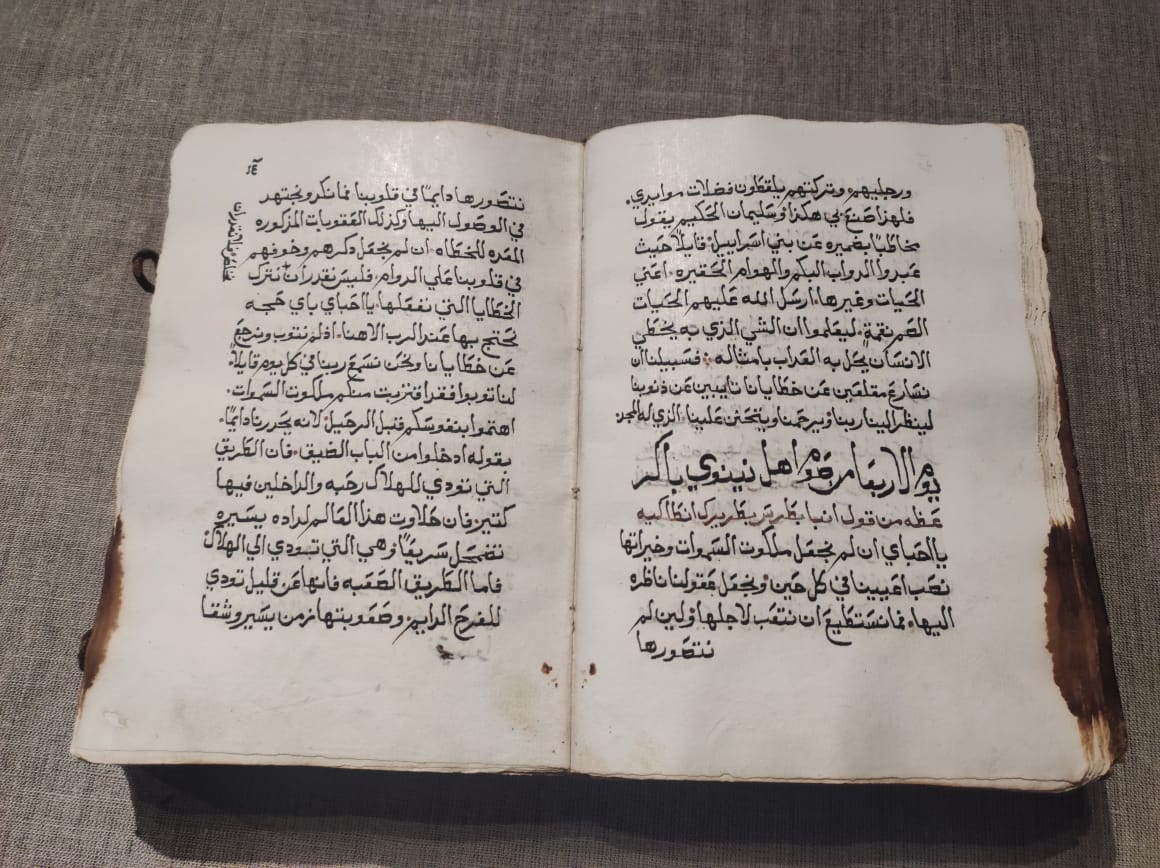 ورجليهم وتركتهم يلقطون فضلات موايدي.
فلهذا صنع بي هكذا وسليمان الحكيم يقول
مخاطبًا بضميره عن بني اسراييل قايلًا حيث
عبدوا الدواب البكم والهوام الحقيره. اعني
الحيات وغيرها. ارسل الله عليهم الحيات
الصم نقمةً. ليعلموا ان الشي الذي به يخطي
الانسان يحل به العداب بامثاله. فسبيلنا ان
نسارع مقلعين عن خطايانا تايبين عن ذنوبنا
لينظر الينا ربنا ويرحمنا ويتحنن علينا. الذي له المجد
يوم الاربعا من صوم اهل نينوي باكر
عظه من قول انبا بطرس بطريرك انطاكيه
يا احباي ان لم نجعل ملكوت السموات وخيراتها
نصب اعيينا في كل حين ونجعل عقولنا ناظره
اليها. فما نستطيع ان نتعب لاجلها ولين لم
نتصورها
١٤
نتصورها دايمًا في قلوبنا فما نكد ونجتهد
في الوصول اليها وكذلك العقوبات المذكوره
المعده للخطاه. ان لم نجعل ذكرهم وخوفهم
في قلوبنا علي الدوام. فليس نقدر ان نترك
الخطايا التي نفعلها يا احباي باي حجه
نحتج بها عند الرب الاهنا. اذ لم نتوب ونرجع
عن خطايانا ونحن نسمع ربنا في كل يوم قايلًا.
لنا توبوا فقد اقتربت منكم ملكوت السموات.
اهتموا بنفوسكم قبل الرحيل لانه يحدرنا دايمًا.
بقوله ادخلوا من الباب الضيق. فان الطريق
التي تودي للهلاك رحبه والداخلين فيها
كتيرٌ فان حلاوت هذا العالم لداده يسيره
تضمحل سريعًا وهي التي تبودي الي الهلاك
فاما الطريق الصعبه فانها عن قليل تودي
للفرح الدايم. وصعوبتها زمن يسير وشقا